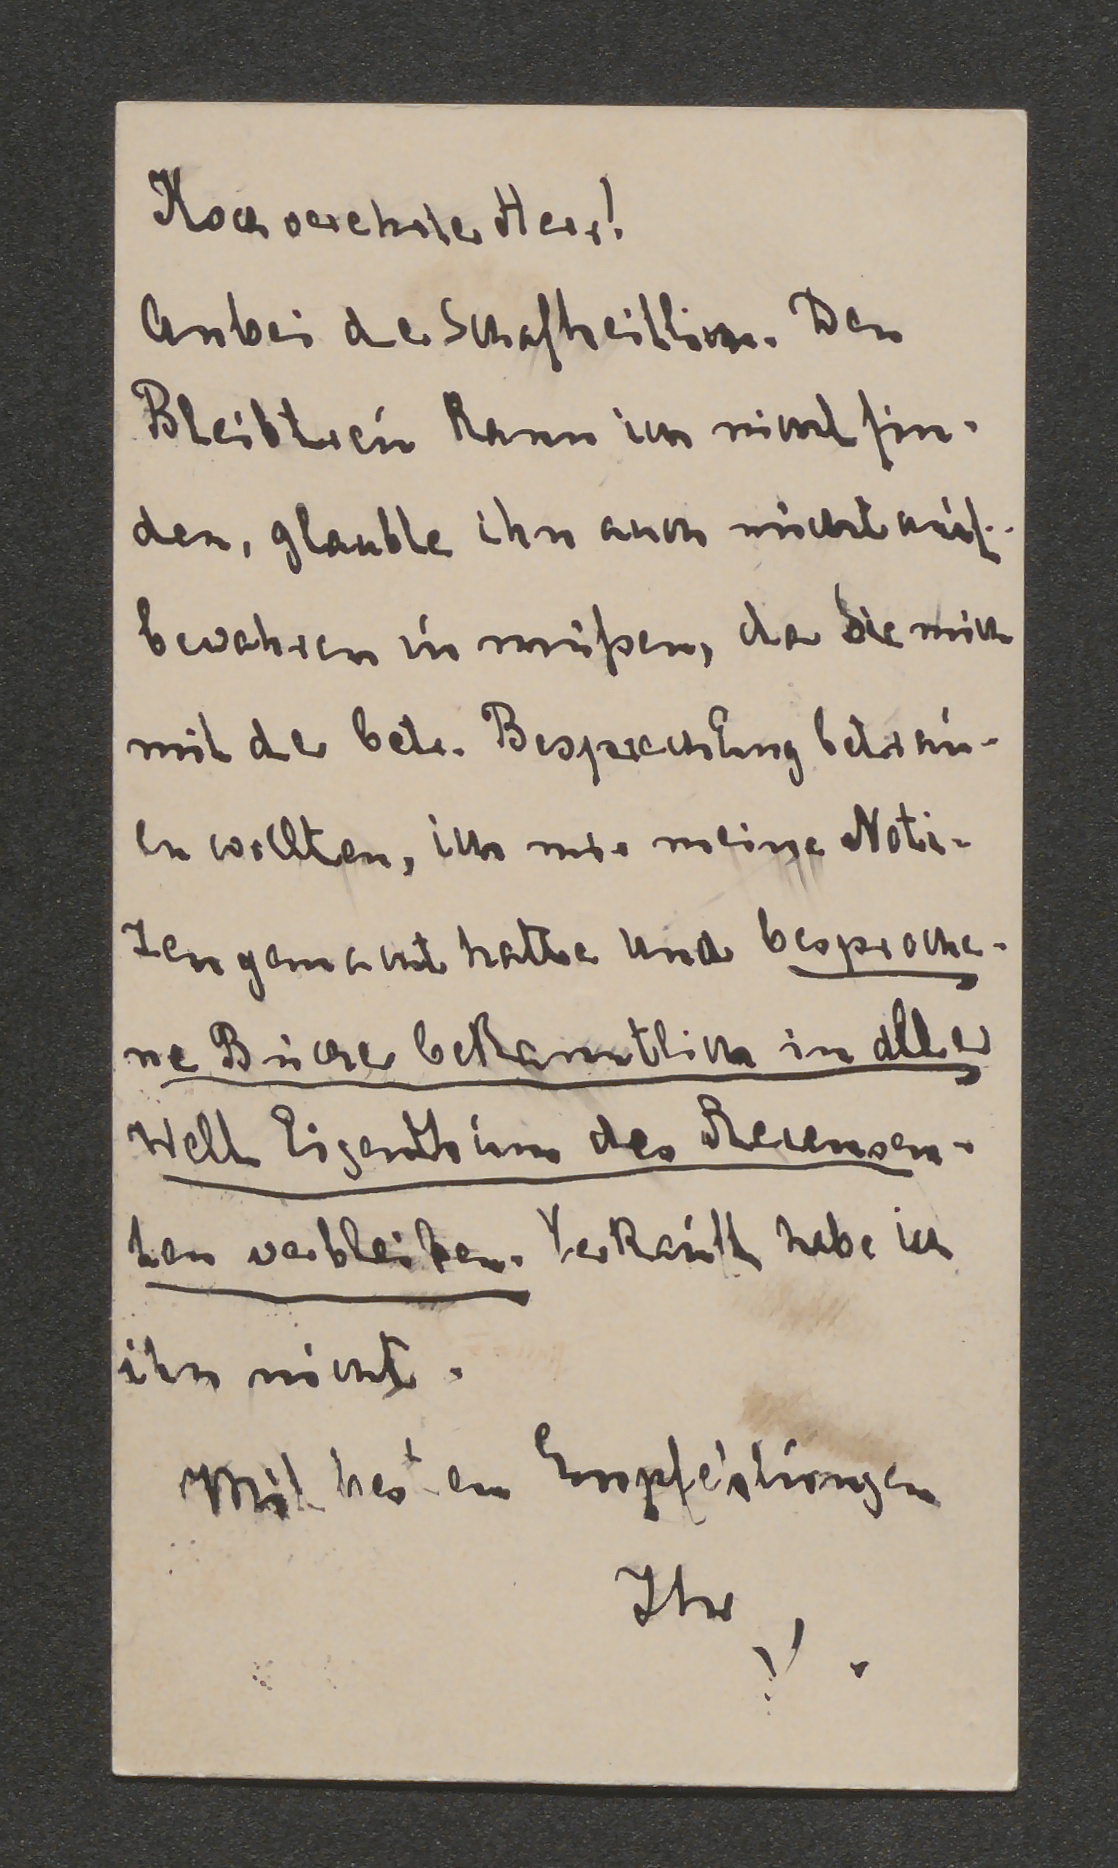 Hochverehrter Herr!
Anbei der Schafheitlin. Den
Bleibtreu kann ich nicht fin-
den, glaubte ihn auch nicht auf-
bewahren zu müßen, da Sie mich
mit der betr. Besprechung betrau-
en wollten, ich mir meine Noti-
zen gemacht hatte und besproche-
ne Bücher bekanntlich in aller
Welt Eigenthum des Recensen-
ten verbleiben. Verkauft habe ich
ihn nicht.
Mit besten Empfehlungen
Ihr